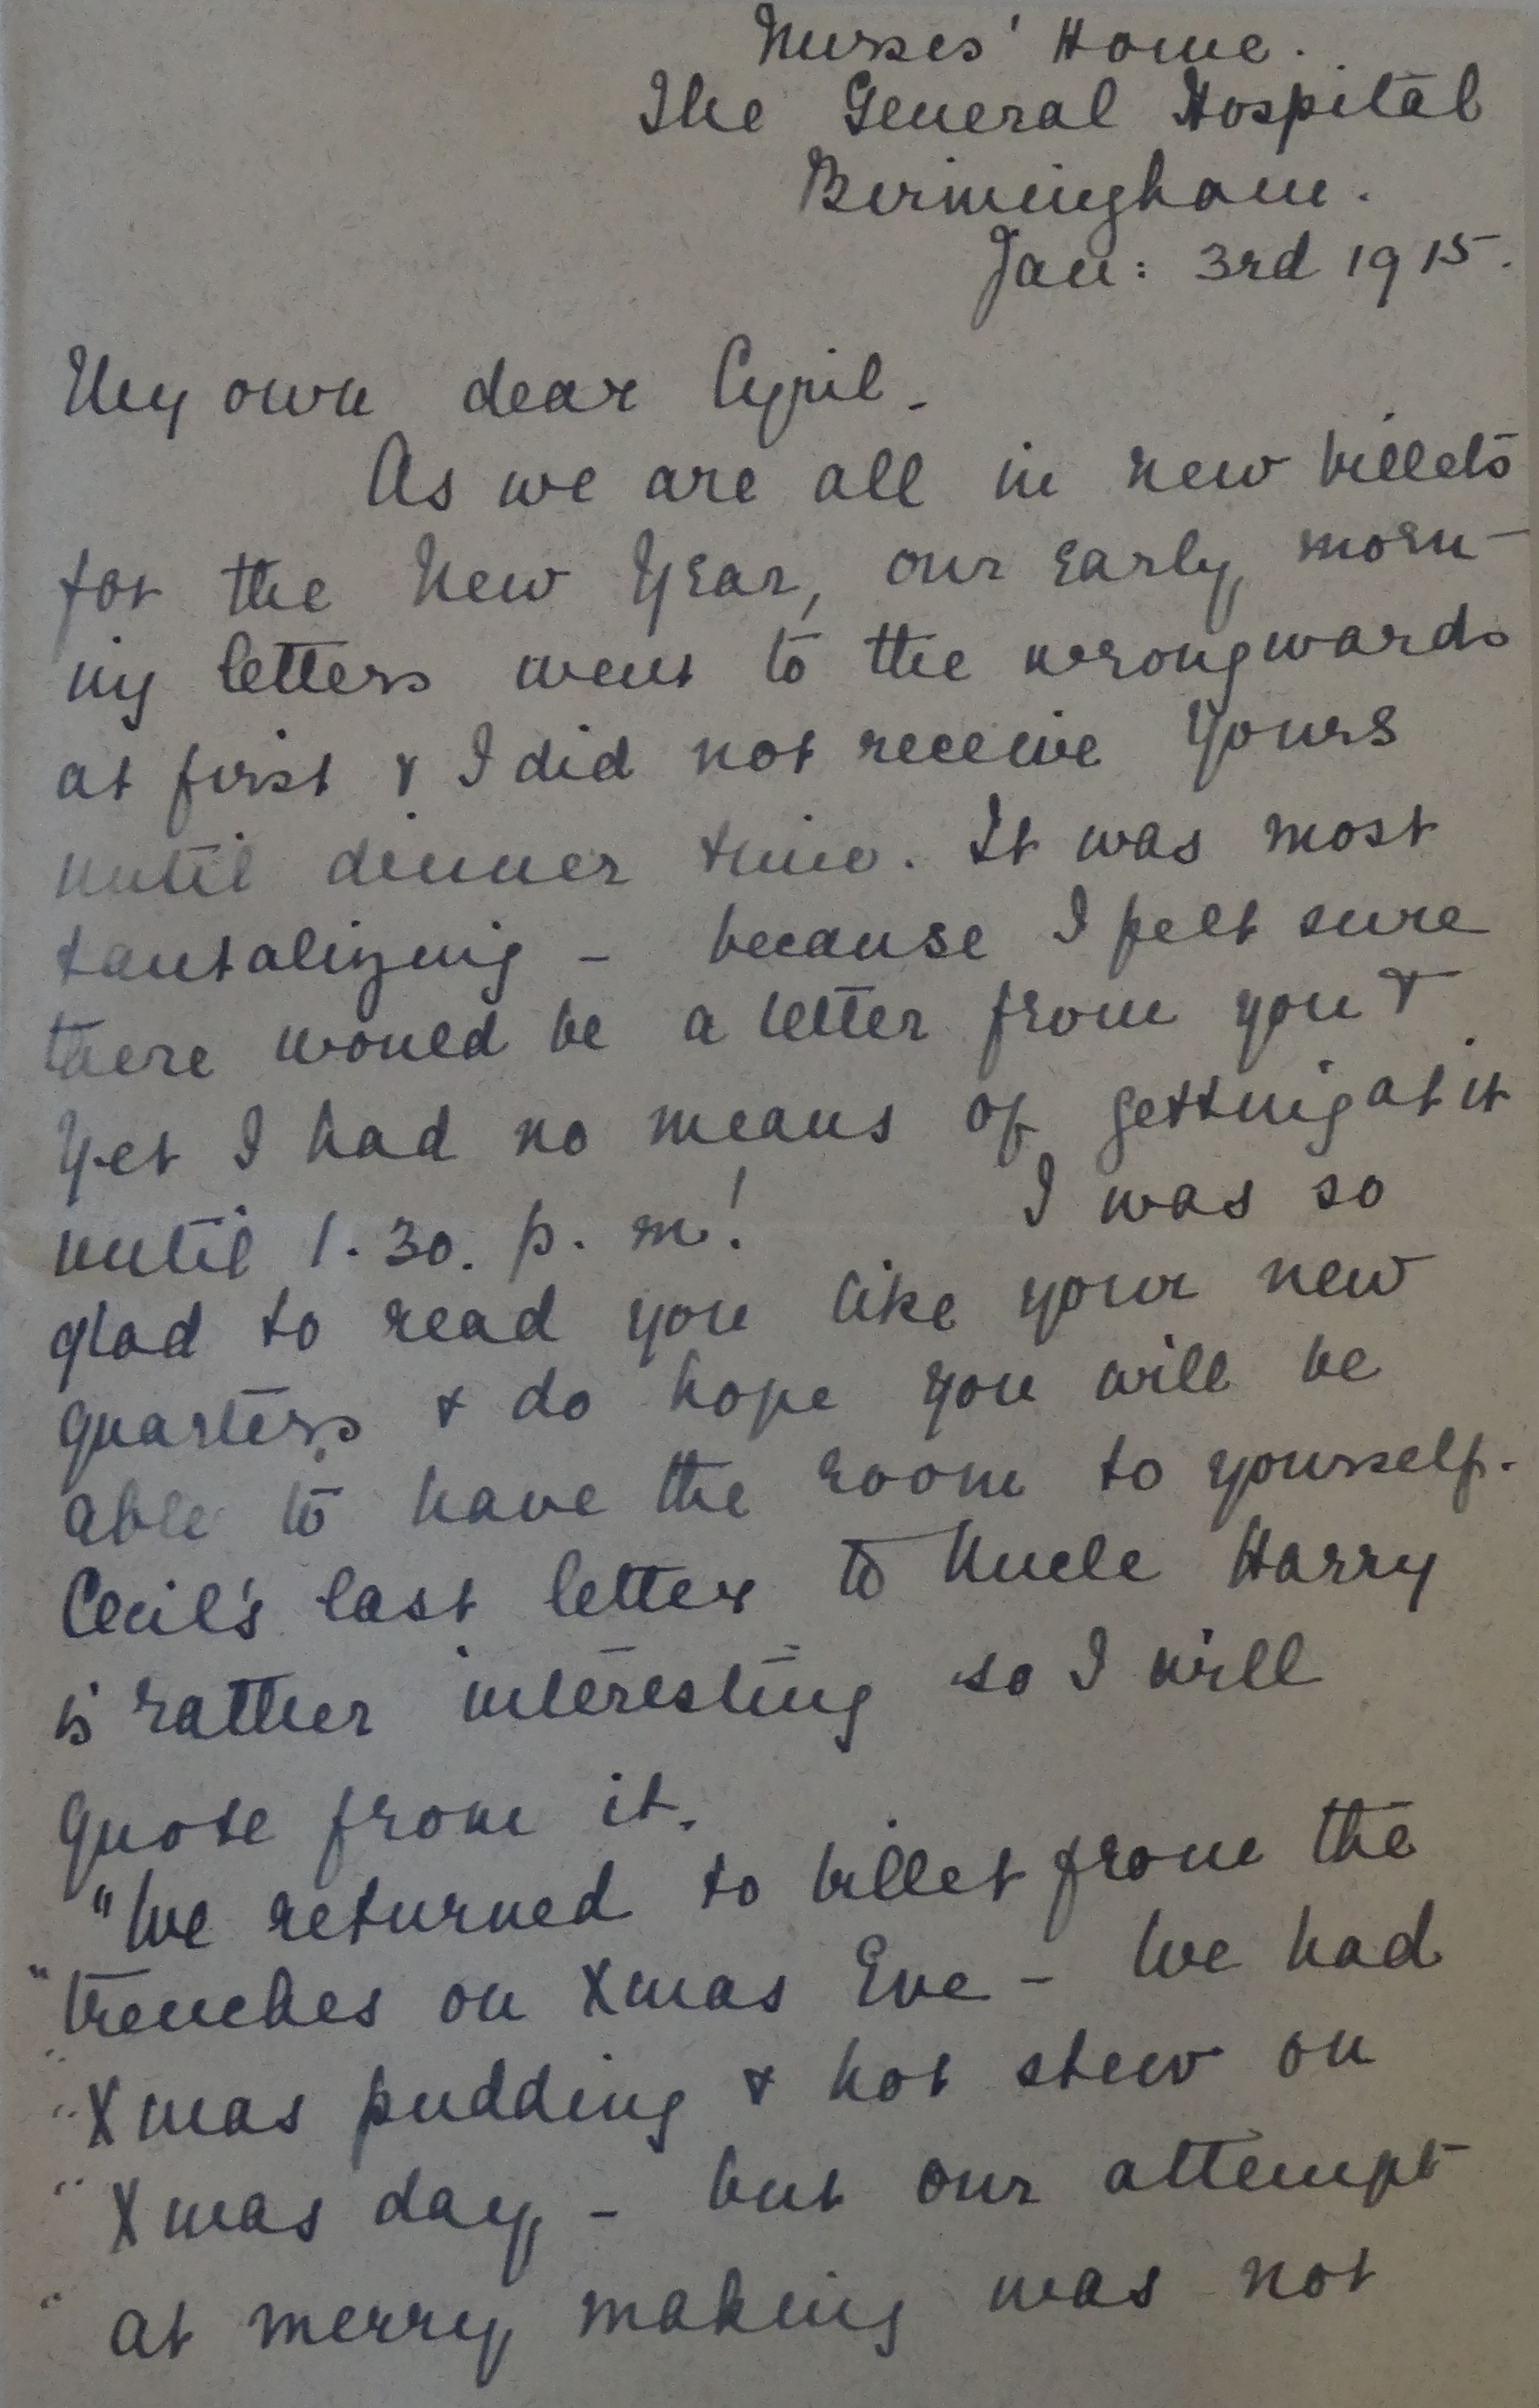 Nurses' Home.
The General Hospital
Birmingham.
Jan: 3rd 1915.
My own dear Cyril.
As we are all in new billets
for the New Year, our early morn-
ing letters went to the wrong wards
at first & I did not receive yours
until dinner time. It was most
tantalizing - because I felt sure
there would be a letter from you &
yet I had no means of getting at it
until 1.30. p. m! I was so
glad to read you like your new
quarters & do hope you will be
able to have the room to yourself.
Cecil's last letter to Uncle Harry
is rather interesting so I will
quote from it.
"We returned to billet from the
" trenches on Xmas Eve - We had
" Xmas pudding & hot stew on
" Xmas day - but our attempt
" at merry making was not